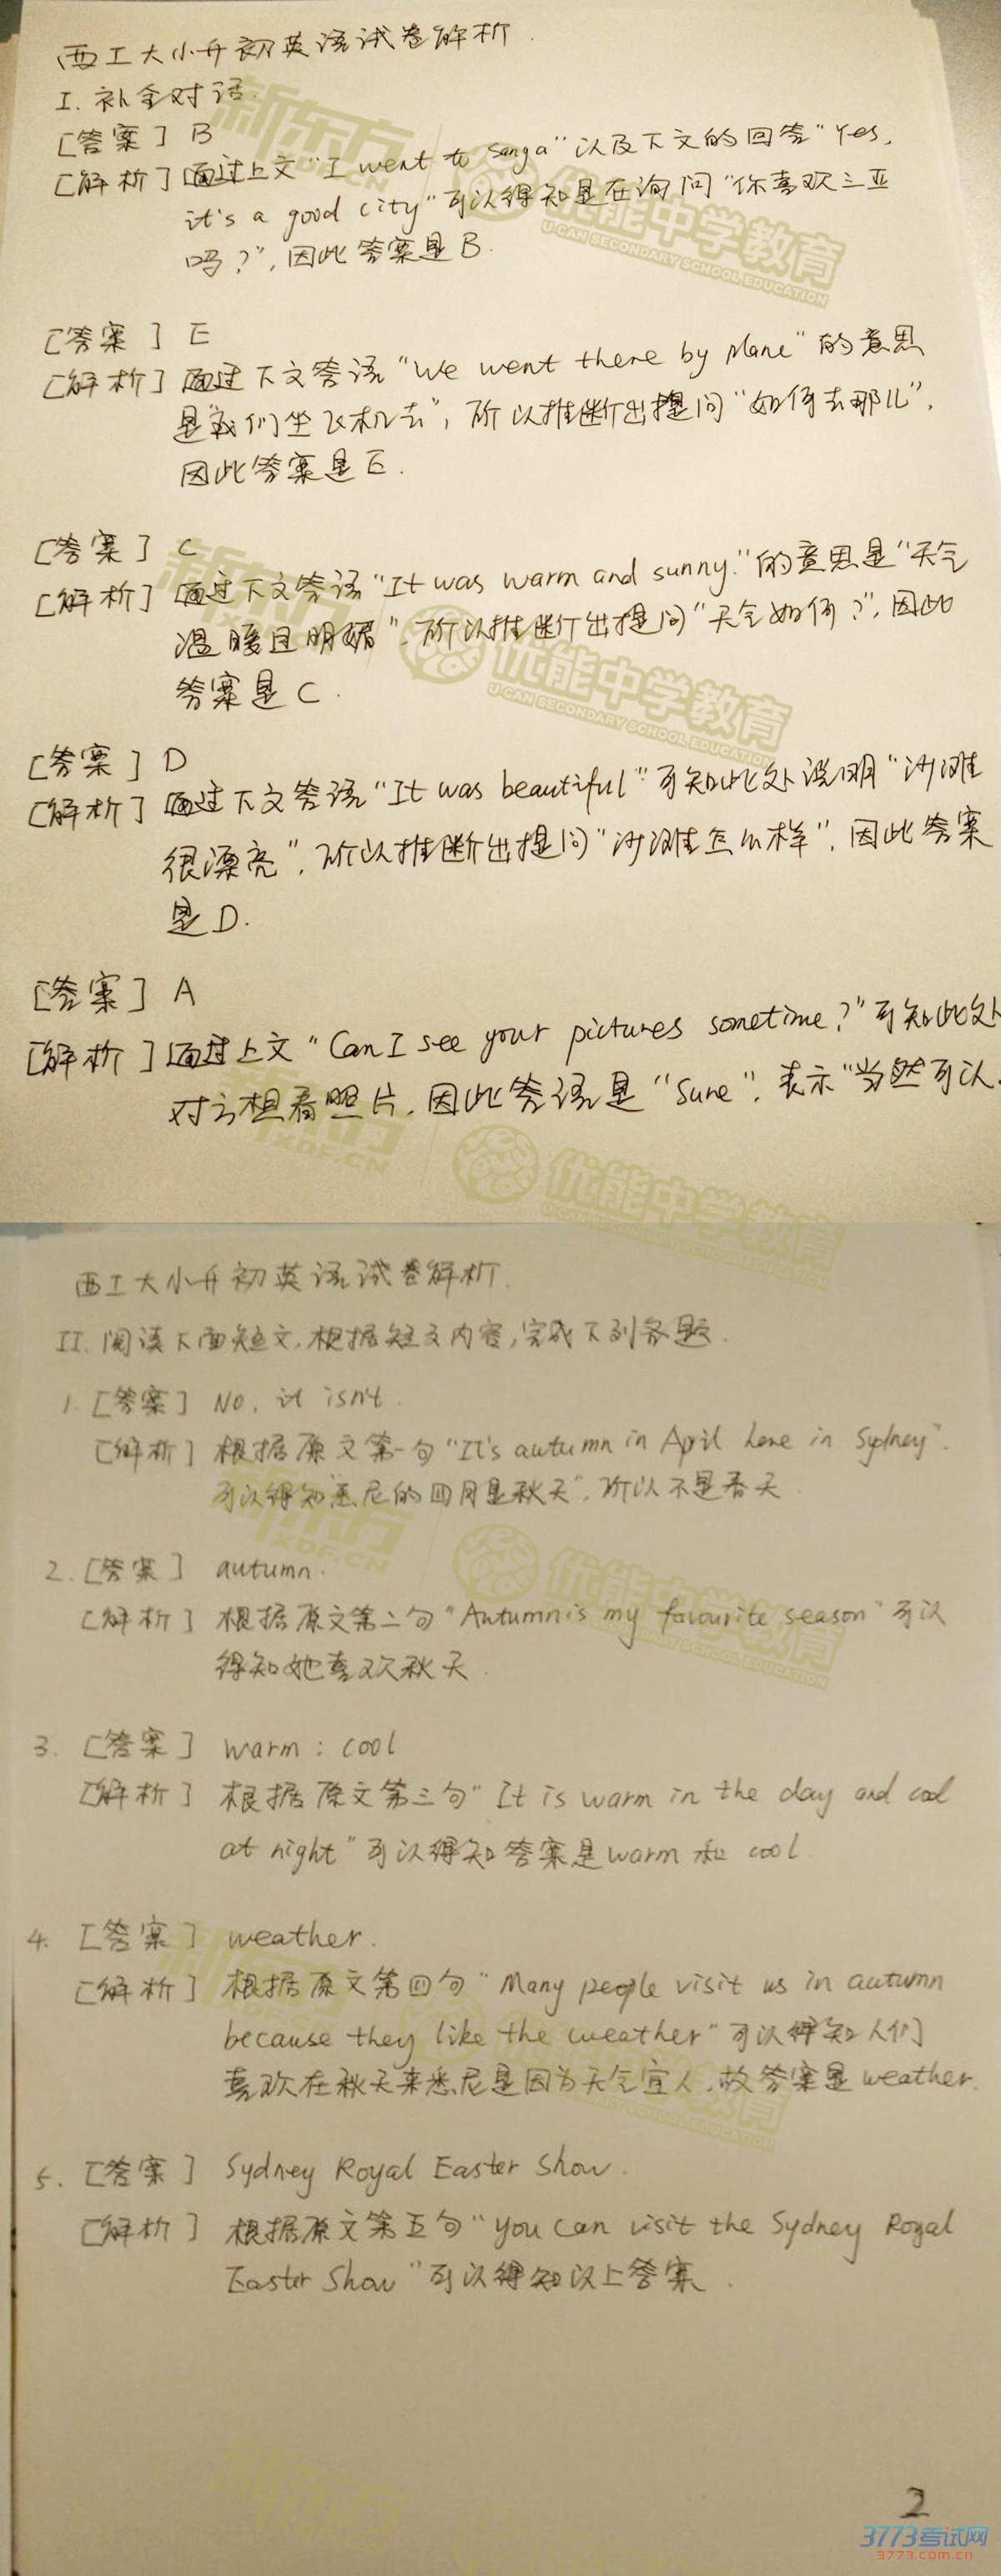 西工大小升初英语试卷解析.
I. 补全对话.
[答案] B
[解析] 通过上文"I went to Sanya"以及下文的回答"Yes,
it's a good city"可以得知是在询问"你喜欢三亚
吗?",因此答案是B.
[答案] E
[解析] 通过下文答语"We went there by plane"的意思
是"我们坐飞机去",所以推断出提问"如何去那儿",
因此答案是E.
[答案] C
[解析] 通过下文答语"It was warm and sunny."的意思是"天气
温暖且明媚",所以推断出提问"天气如何?",因此
答案是C.
[答案] D
[解析] 通过下文答语"It was beautiful"可知此处说明"沙滩
很漂亮",所以推断出提问"沙滩怎么样",因此答案
是D.
[答案] A
[解析] 通过上文"Can I see your pictures sometime?"可知此处
对方想看照片,因此答语是"Sure",表示"当然可以.
西工大小升初英语试卷解析.
II. 阅读下面短文,根据短文内容,完成下列各题.
1. [答案] No, it isn't.
[解析] 根据原文第一句"It's autumn in April here in Sydney".
可以得知"悉尼的四月是秋天",所以不是春天.
2. [答案] autumn.
[解析] 根据原文第二句"Autumn is my favourite season"可以
得知她喜欢秋天.
3. [答案] warm ; cool
[解析] 根据原文第三句"It is warm in the day and cool
at night"可以得知答案是warm和cool
4. [答案] weather.
[解析] 根据原文第四句"Many people visit us in autumn
because they like the weather"可以得知人们
喜欢在秋天来悉尼是因为天气宜人,故答案是weather.
5. [答案] Sydney Royal Easter Show.
[解析] 根据原文第五句"You can visit the Sydney Royal
Easter Show"可以得知以上答案.
2
新东方
XDF.CN
优能中学教育
U-CAN SECONDARY SCHOOL EDUCATION
3773考试网
3773.com.cn